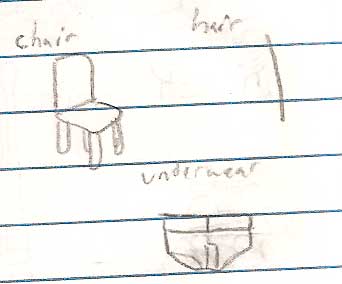 chair
hair
underwear